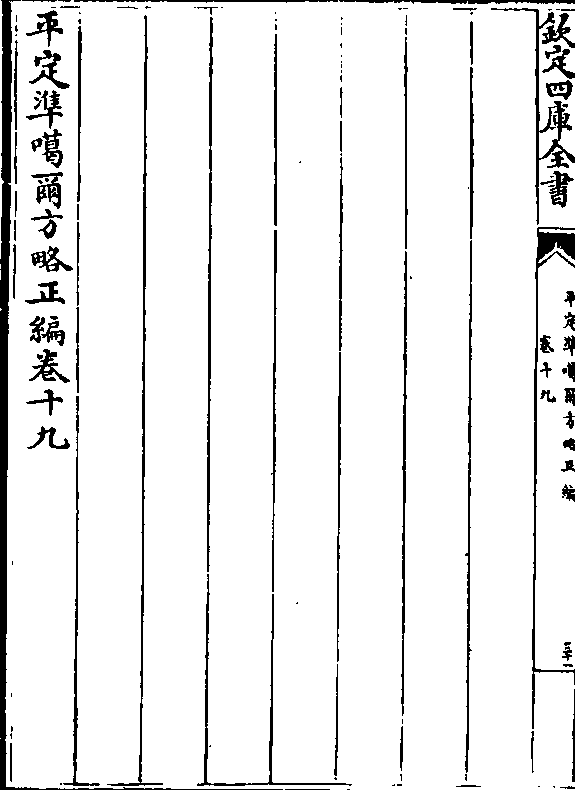 欽定四庫全書
平定準噶爾方略正編
卷十九
三十一
平定準噶爾方略正編卷十九